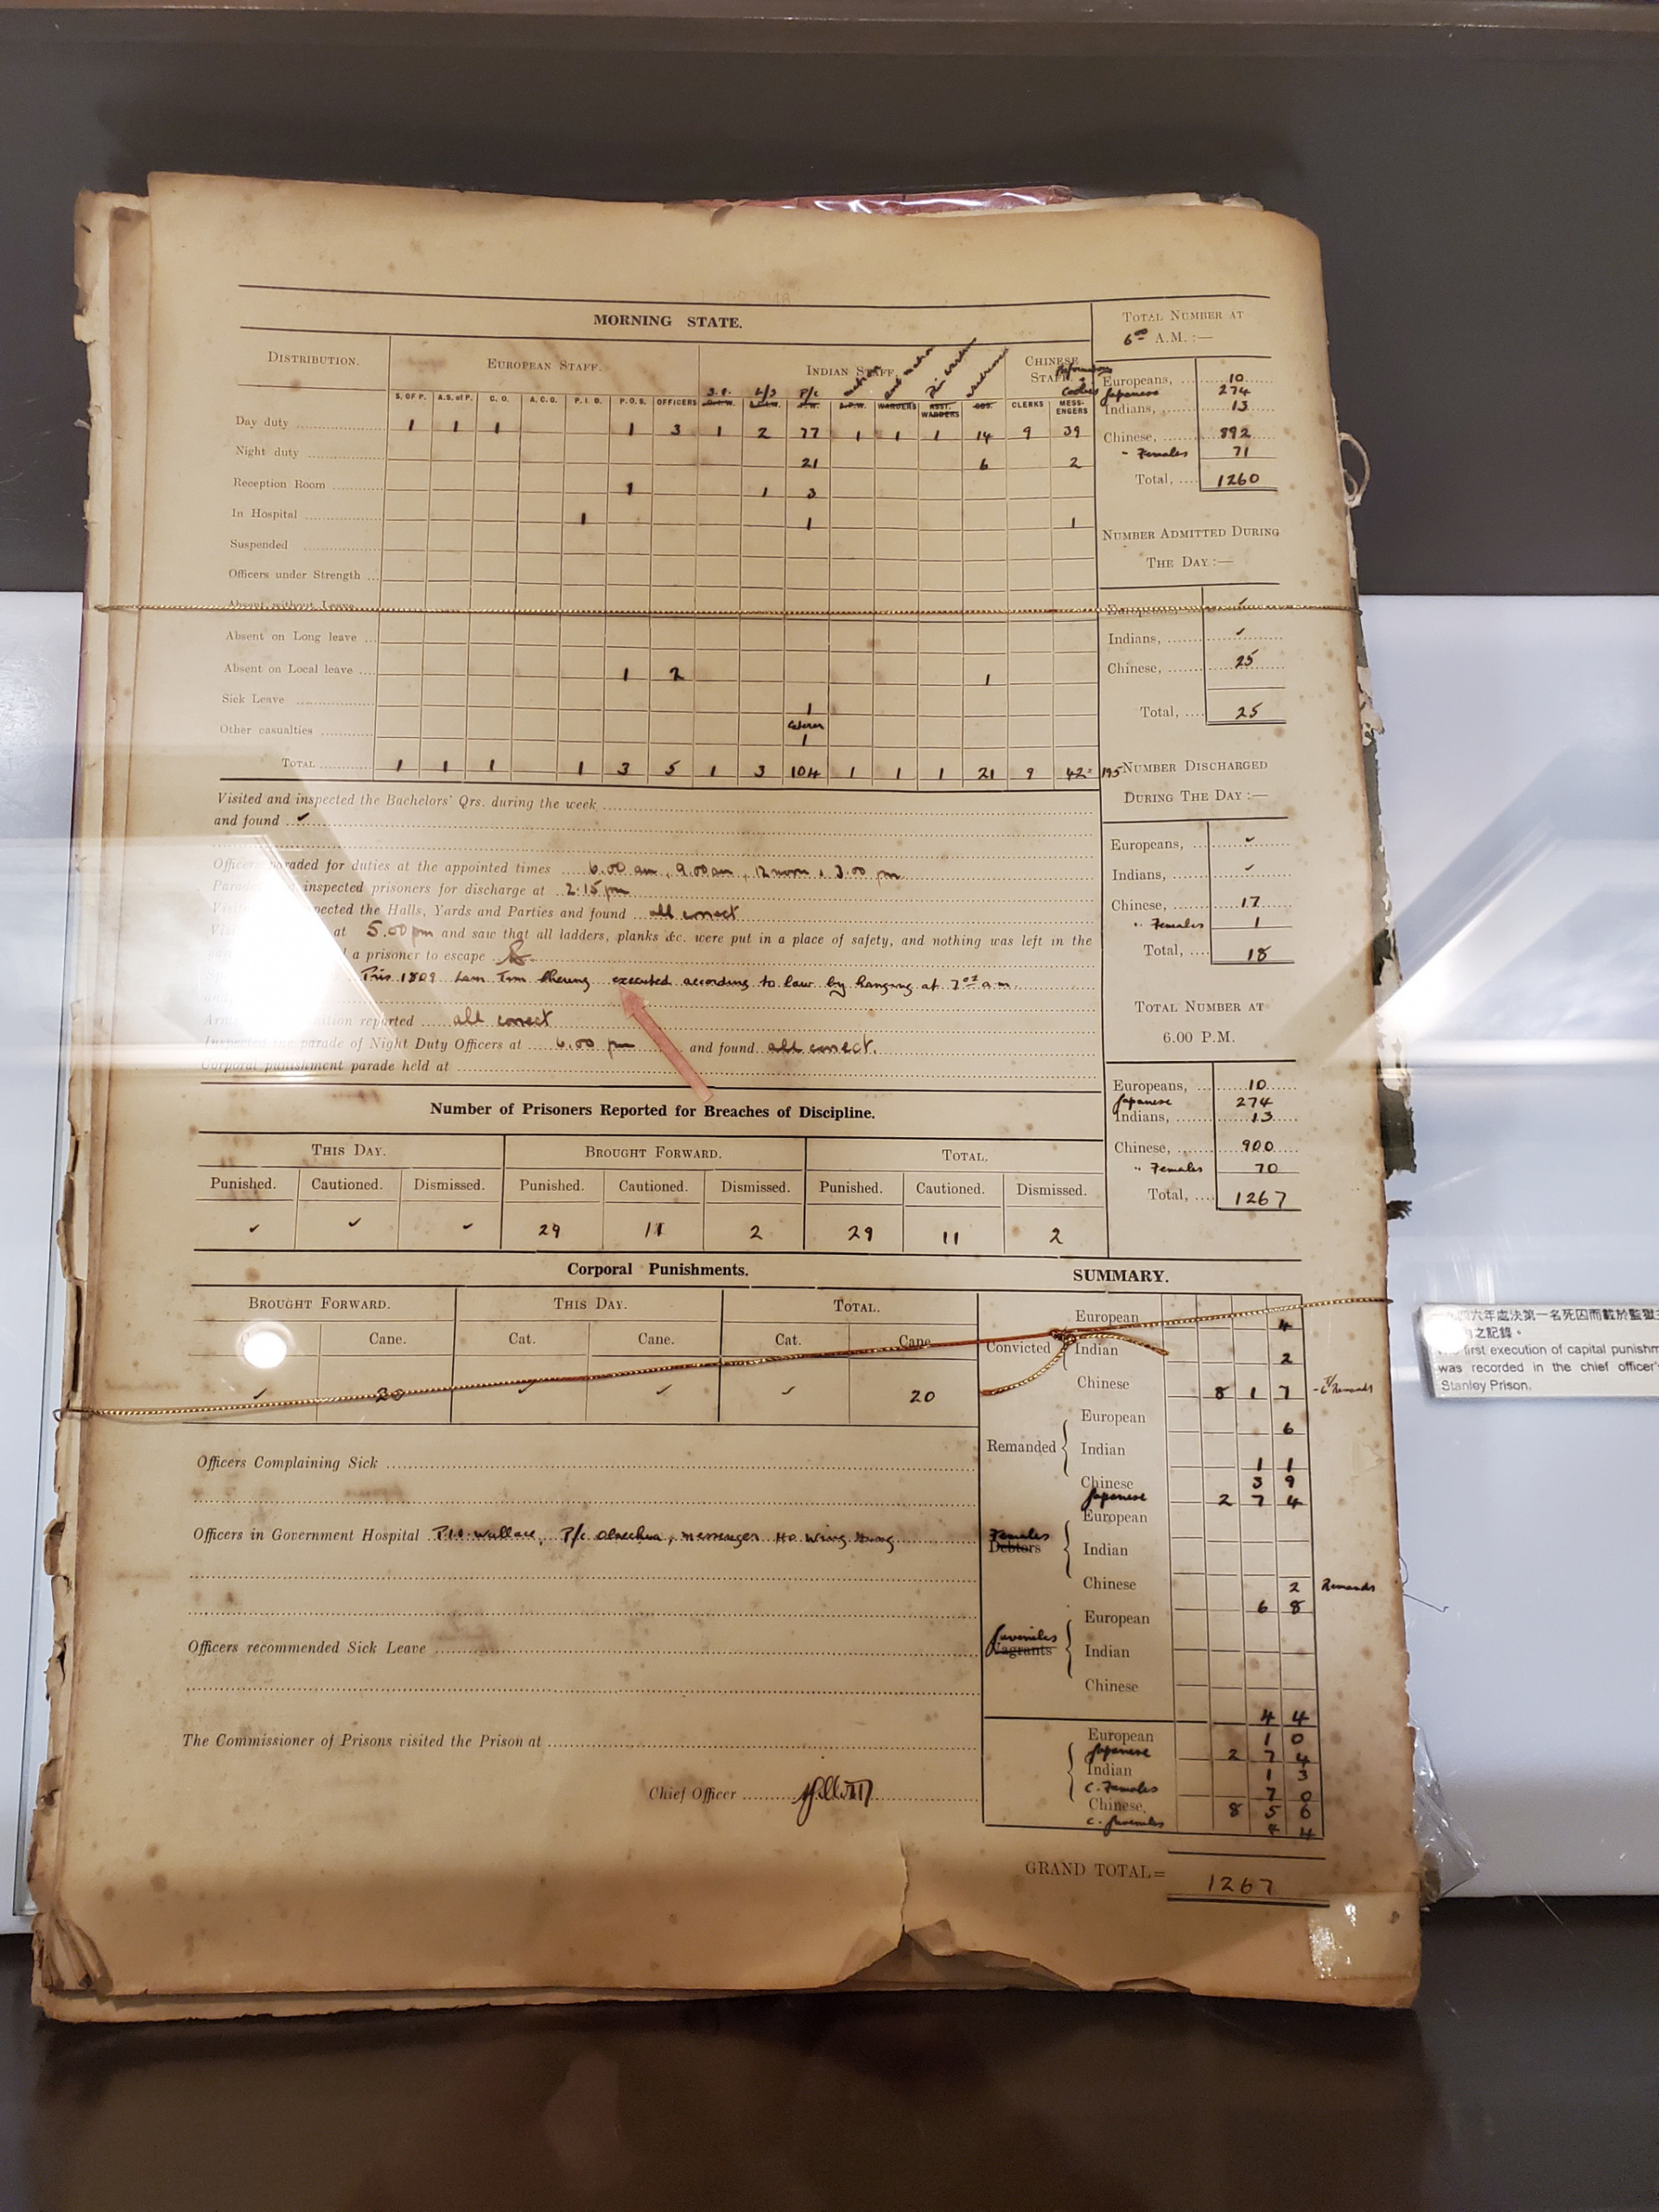 MORNING STATE.
DISTRIBUTION.
EUROPEAN STAFF.
INDIAN STAFF.
CHINESE STAFF.
S. OF P. A.S. of P. C. O. A. C. O. P. I. O. P. O. S. OFFICERS CLERKS MESSENGERS
Day duty 1 1 1 1 3 1 2 77 1 1 1 14 9 39
Night duty 21 6 2
Reception Room 1 1 3
In Hospital 1 1 1
Suspended
Officers under Strength
Absent without Leave
Absent on Long leave
Absent on Local leave 1 2 1
Sick Leave 1
Other casualties 1
TOTAL 1 1 1 1 3 5 1 3 104 1 1 1 21 9 42 = 195
Visited and inspected the Bachelors' Qrs. during the week
and found ✓
Officers paraded for duties at the appointed times 6.00 am, 9.00 am, 12 noon & 3.00 pm
inspected prisoners for discharge at 2.15 pm
the Halls, Yards and Parties and found all correct
at 5.00 pm and saw that all ladders, planks &c. were put in a place of safety, and nothing was left in the
a prisoner to escape
Pris. 1809 Lam Tim Cheung executed according to law by hanging at 7 a.m.
reported all correct
Inspected the parade of Night Duty Officers at 6.00 pm and found all correct.
Corporal punishment parade held at
TOTAL NUMBER AT
6 00 A.M. :—
Europeans, 10
Japanese 274
Indians, 13
Chinese, 892
" Females 71
Total, 1260
NUMBER ADMITTED DURING
THE DAY :—
Europeans, ✓
Indians, ✓
Chinese, 25
Total, 25
NUMBER DISCHARGED
DURING THE DAY :—
Europeans, ✓
Indians, ✓
Chinese, 17
" Females 1
Total, 18
TOTAL NUMBER AT
6.00 P.M.
Europeans, 10
Japanese 274
Indians, 13
Chinese, 900
" Females 70
Total, 1267
Number of Prisoners Reported for Breaches of Discipline.
THIS DAY. BROUGHT FORWARD. TOTAL.
Punished. Cautioned. Dismissed. Punished. Cautioned. Dismissed. Punished. Cautioned. Dismissed.
✓ ✓ ✓ 29 11 2 29 11 2
Corporal Punishments.
BROUGHT FORWARD. THIS DAY. TOTAL.
Cane. Cat. Cane. Cat. Cane.
✓ 20 ✓ ✓ ✓ 20
Officers Complaining Sick
Officers in Government Hospital P.I.O. Wallace, P/c messenger Ho Wing
Officers recommended Sick Leave
The Commissioner of Prisons visited the Prison at
Chief Officer
SUMMARY.
Convicted
European 4
Indian 2
Chinese 817
Remanded
European 6
Indian 11
Chinese 39
Japanese 274
Females
Debtors
European
Indian
Chinese 2 Remands
68
Juveniles
Vagrants
European
Indian
Chinese
44
European 10
Japanese 274
Indian 13
C. Females 70
Chinese, 856
C. Juveniles 44
GRAND TOTAL = 1267
六年處決第一名死囚而載於監獄
之記錄。
first execution of capital
was recorded in the chief officer'
Stanley Prison.